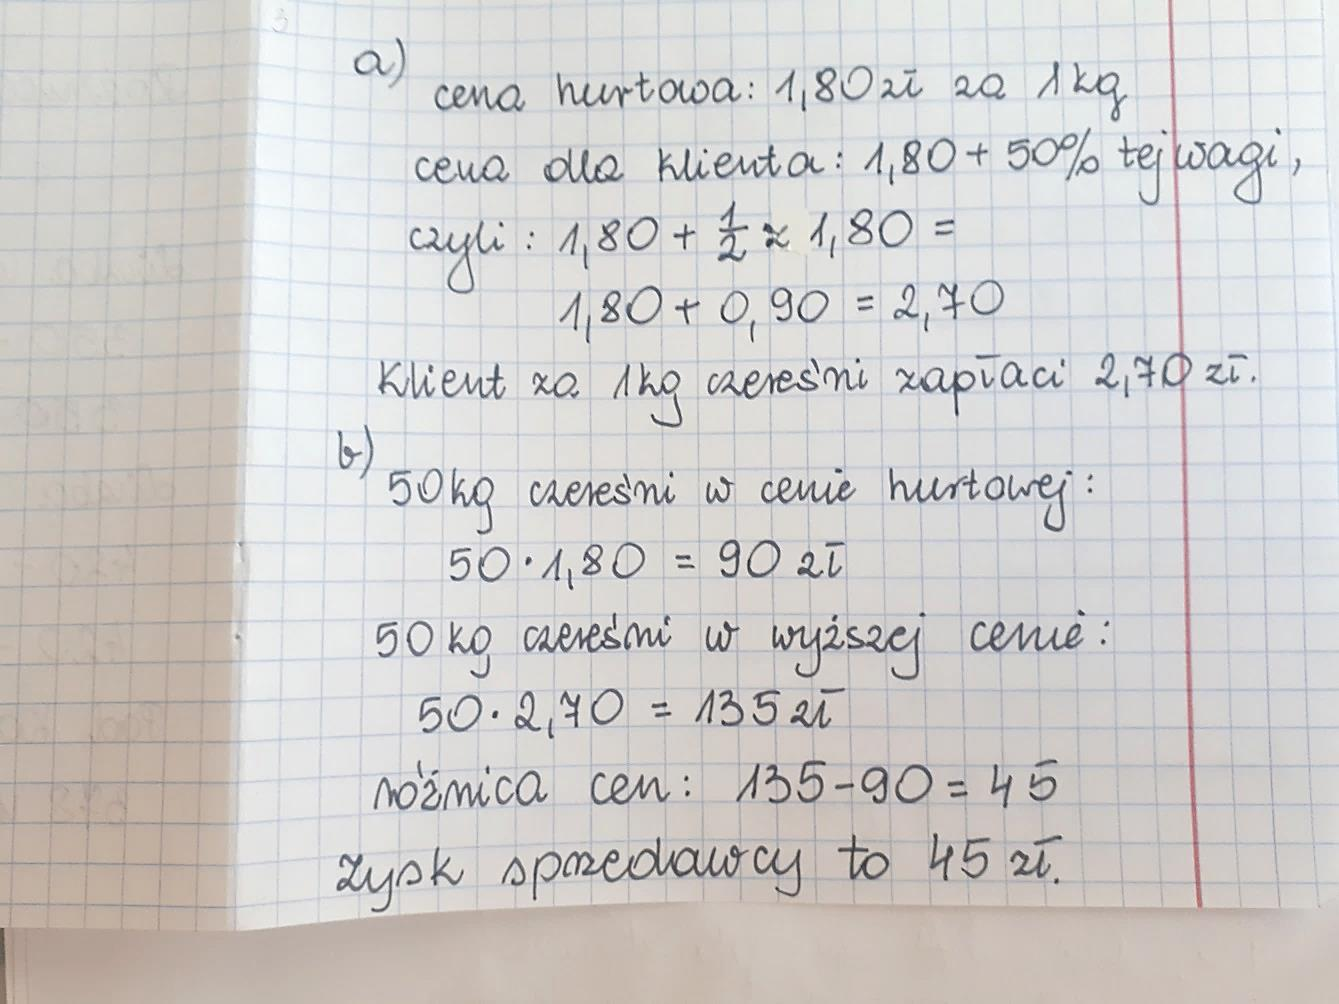 a)
cena hurtowa: 1,80 zł za 1 kg
cena dla klienta: 1,80 + 50% tej wagi,
czyli: 1,80 + 1/2 z 1,80 =
1,80 + 0,90 = 2,70
Klient za 1kg czereśni zapłaci 2,70 zł.
b)
50kg czereśni w cenie hurtowej:
50 · 1,80 = 90 zł
50 kg czereśni w wyższej cenie:
50 · 2,70 = 135 zł
różnica cen: 135 - 90 = 45
Zysk sprzedawcy to 45 zł.